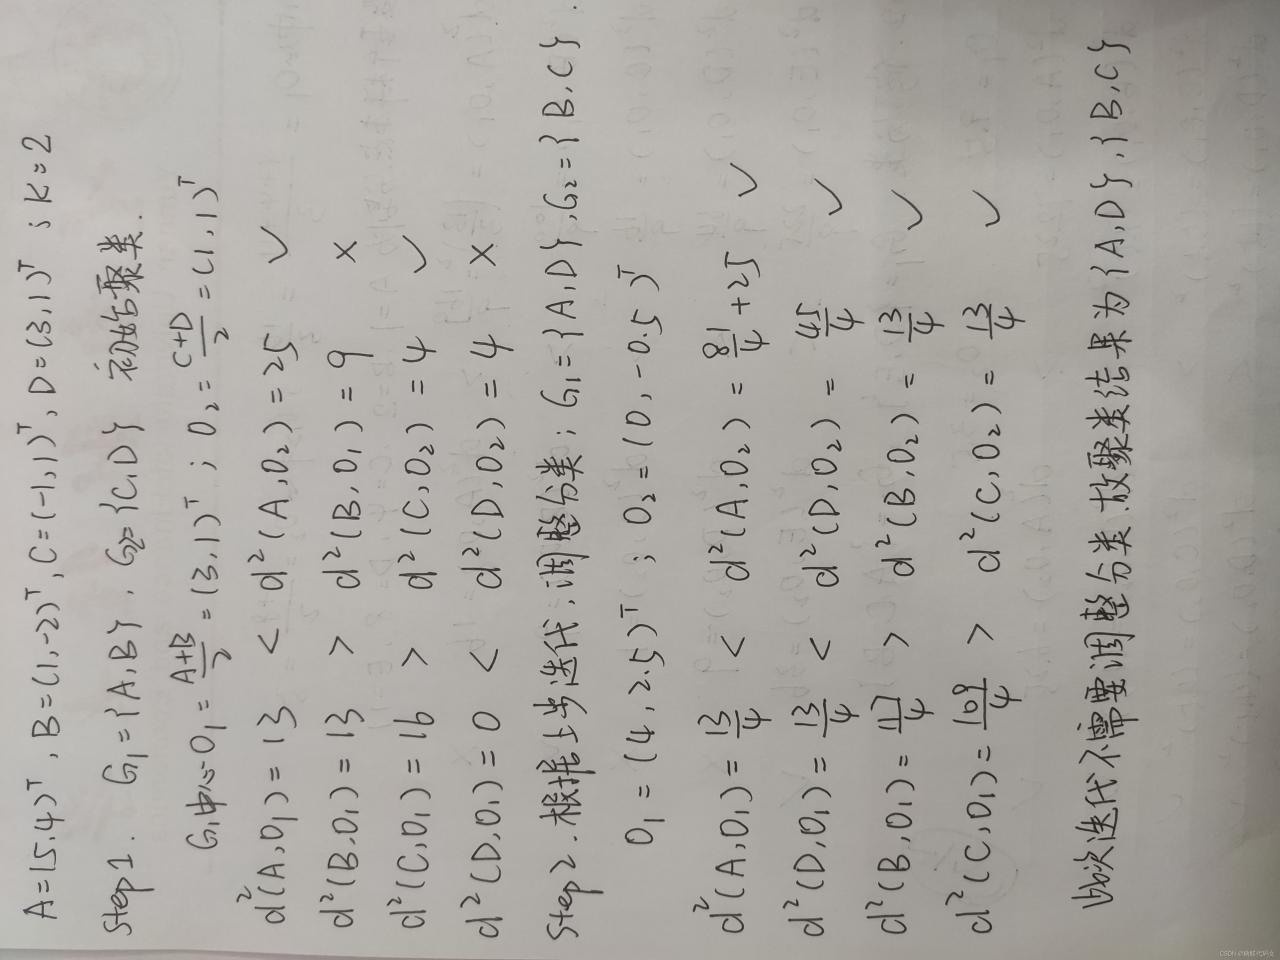 A=(5,4)ᵀ, B=(1,-2)ᵀ, C=(-1,1)ᵀ, D=(3,1)ᵀ ; K=2
Step 1. G₁={A,B}. G₂={C,D} 初始聚类.
G₁中心O₁=(A+B)/2=(3,1)ᵀ ; O₂=(C+D)/2=(1,1)ᵀ
d²(A,O₁)=13 < d²(A,O₂)=25 ✓
d²(B,O₁)=13 > d²(B,O₁)=9 ×
d²(C,O₁)=16 > d²(C,O₂)=4 ✓
d²(D,O₁)=0 < d²(D,O₂)=4 ×
Step 2. 根据上步迭代,调整分类; G₁={A,D},G₂={B,C}.
O₁=(4,2.5)ᵀ ; O₂=(0,-0.5)ᵀ
d²(A,O₁)=13/4 < d²(A,O₂)=81/4+25 ✓
d²(D,O₁)=13/4 < d²(D,O₂)=45/4 ✓
d²(B,O₁)=117/4 > d²(B,O₂)=13/4 ✓
d²(C,O₁)=109/4 > d²(C,O₂)=13/4 ✓
此次迭代不需要调整分类.故聚类结果为{A,D}.{B,C}